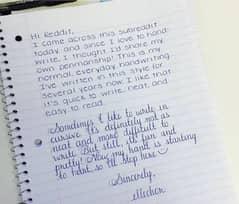 Hi Reddit,
I came across this subreddit
today and since I love to hand-
write, I thought I'd share my
own penmanship! This is my
normal, everyday handwriting.
I've written in this style for
several years now. I like that
it's quick to write, neat, and
easy to read.
Sometimes I like to write in
cursive. It's definitely not as
neat and more difficult to
write. But still, it's fun and
pretty! Now my hand is starting
to hurt so I'll stop here
Sincerely,